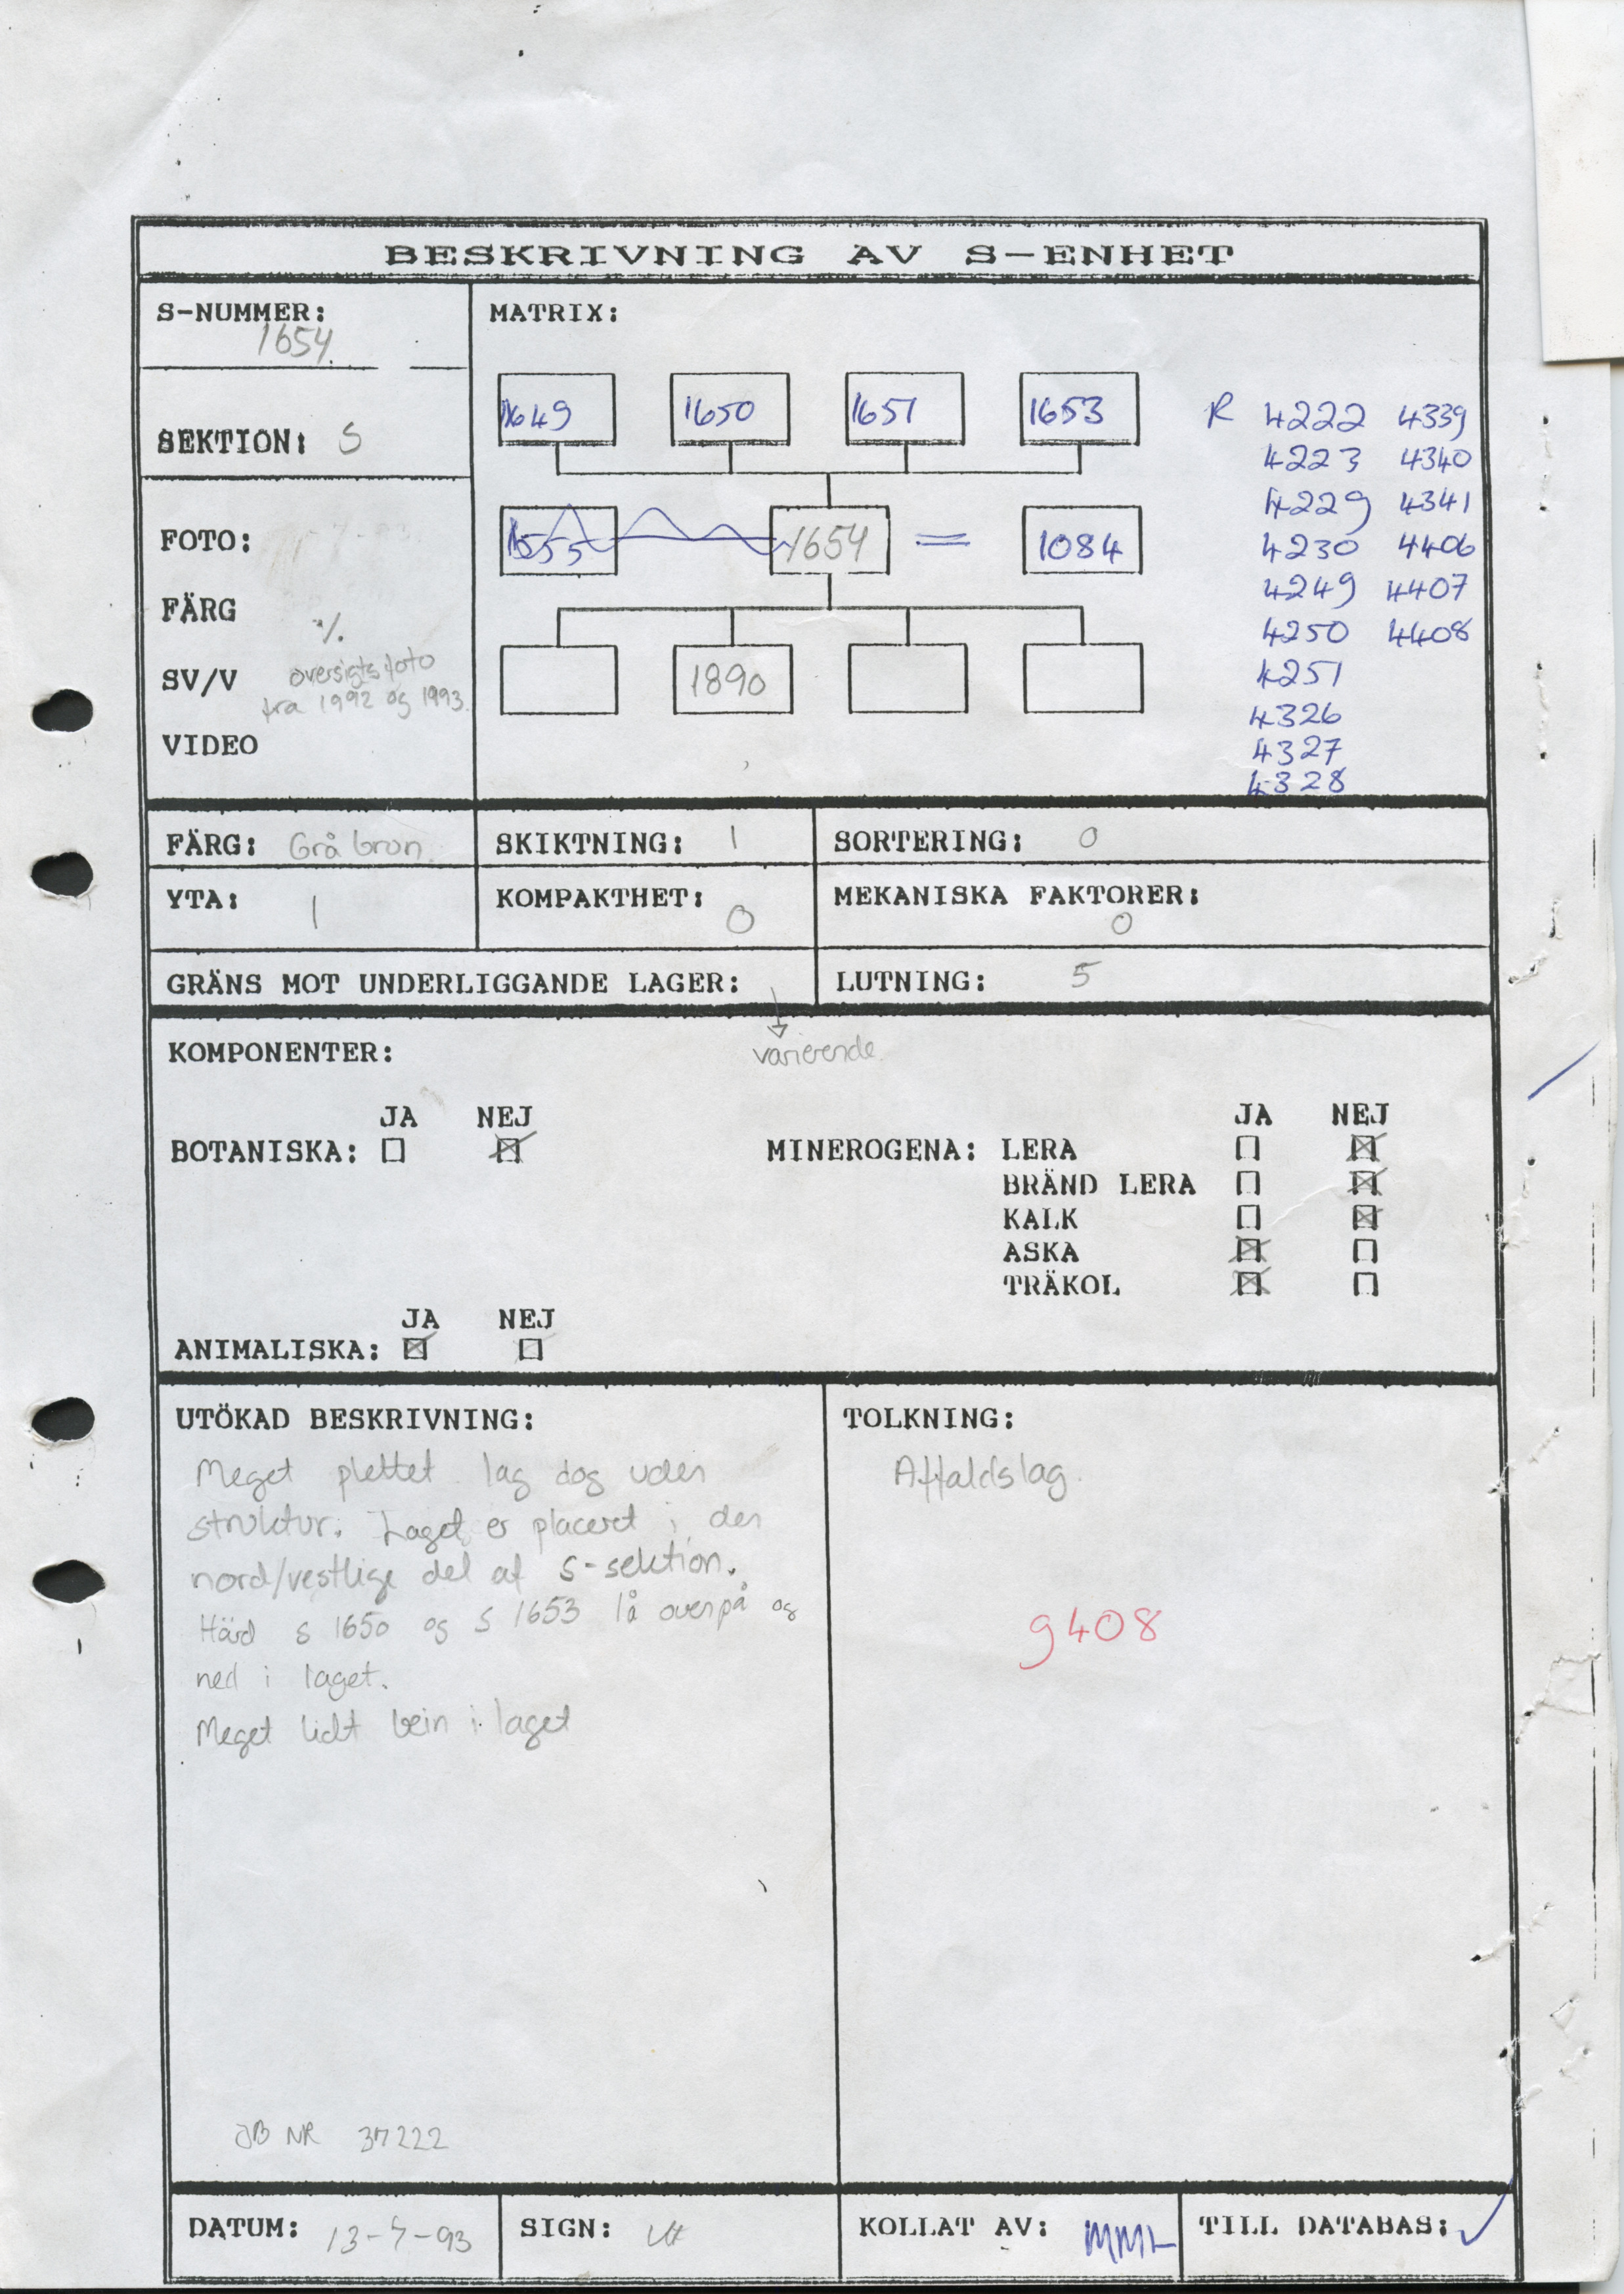 BESKRIVNING AV S-ENHET
S-NUMMER:
1654
SEKTION: S
FOTO:
FÄRG
%
SV/V oversigtsfoto
fra 1992 og 1993.
VIDEO
MATRIX:
1649 1650 1651 1653
1655 1654 = 1084
1890
R 4222 4339
4223 4340
4229 4341
4230 4406
4249 4407
4250 4408
4251
4326
4327
4328
FÄRG: Grå brun SKIKTNING: 1 SORTERING: 0
YTA: 1 KOMPAKTHET: 0 MEKANISKA FAKTORER: 0
GRÄNS MOT UNDERLIGGANDE LAGER: LUTNING: 5
varierende.
KOMPONENTER:
JA NEJ
BOTANISKA: ☐ ☒
MINEROGENA: JA NEJ
LERA ☐ ☒
BRÄND LERA ☐ ☒
KALK ☐ ☒
ASKA ☒ ☐
TRÄKOL ☒ ☐
JA NEJ
ANIMALISKA: ☒ ☐
UTÖKAD BESKRIVNING:
Meget plettet lag dog uden
struktur. Laget er placeret i den
nord/vestlige del af S-sektion.
Härd S 1650 og S 1653 lå ovenpå og
ned i laget.
Meget lidt bein i laget
JB NR 37222
TOLKNING:
Affaldslag.
9408
DATUM: 13-7-93 SIGN: KOLLAT AV: MML TILL DATABAS: ✓